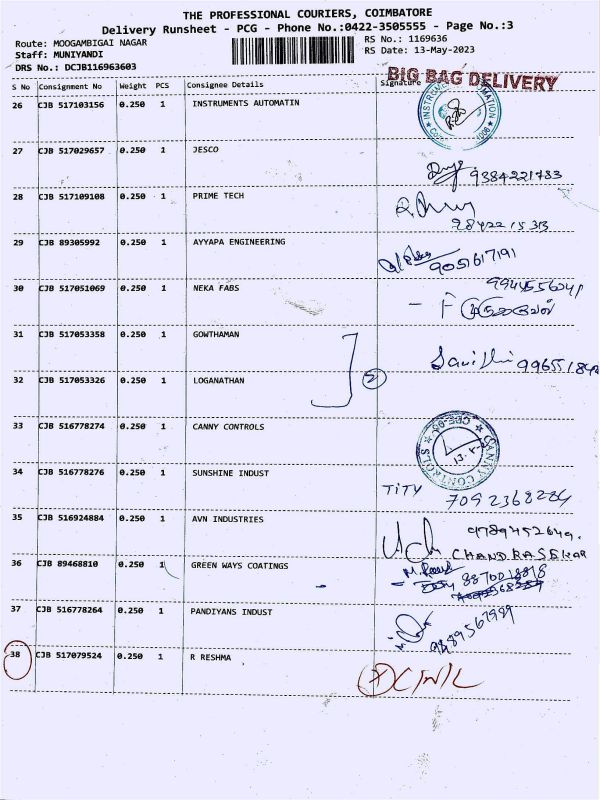 THE PROFESSIONAL COURIERS, COIMBATORE
Delivery Runsheet - PCG - Phone No.:0422-3505555 - Page No.:3
Route: MOOGAMBIGAI NAGAR
RS No.: 1169636
Staff: MUNIYANDI
RS Date: 13-May-2023
DRS No.: DCJB116963603
BIG BAG DELIVERY
S No Consignment No Weight PCS Consignee Details Signature
26 CJB 517103156 0.250 1 INSTRUMENTS AUTOMATIN
27 CJB 517029657 0.250 1 JESCO
9384221783
28 CJB 517109108 0.250 1 PRIME TECH
9842215313
29 CJB 89305992 0.250 1 AYYAPA ENGINEERING
9051617191
30 CJB 517051069 0.250 1 NEKA FABS
31 CJB 517053358 0.250 1 GOWTHAMAN
32 CJB 517053326 0.250 1 LOGANATHAN
2
33 CJB 516778274 0.250 1 CANNY CONTROLS
CANNY CONTROLS
34 CJB 516778276 0.250 1 SUNSHINE INDUST
TITY 7092368284
35 CJB 516924884 0.250 1 AVN INDUSTRIES
9789452649.
CHANDRASEKAR
36 CJB 89468810 0.250 1 GREEN WAYS COATINGS
8870018818
37 CJB 516778264 0.250 1 PANDIYANS INDUST
38 CJB 517079524 0.250 1 R RESHMA